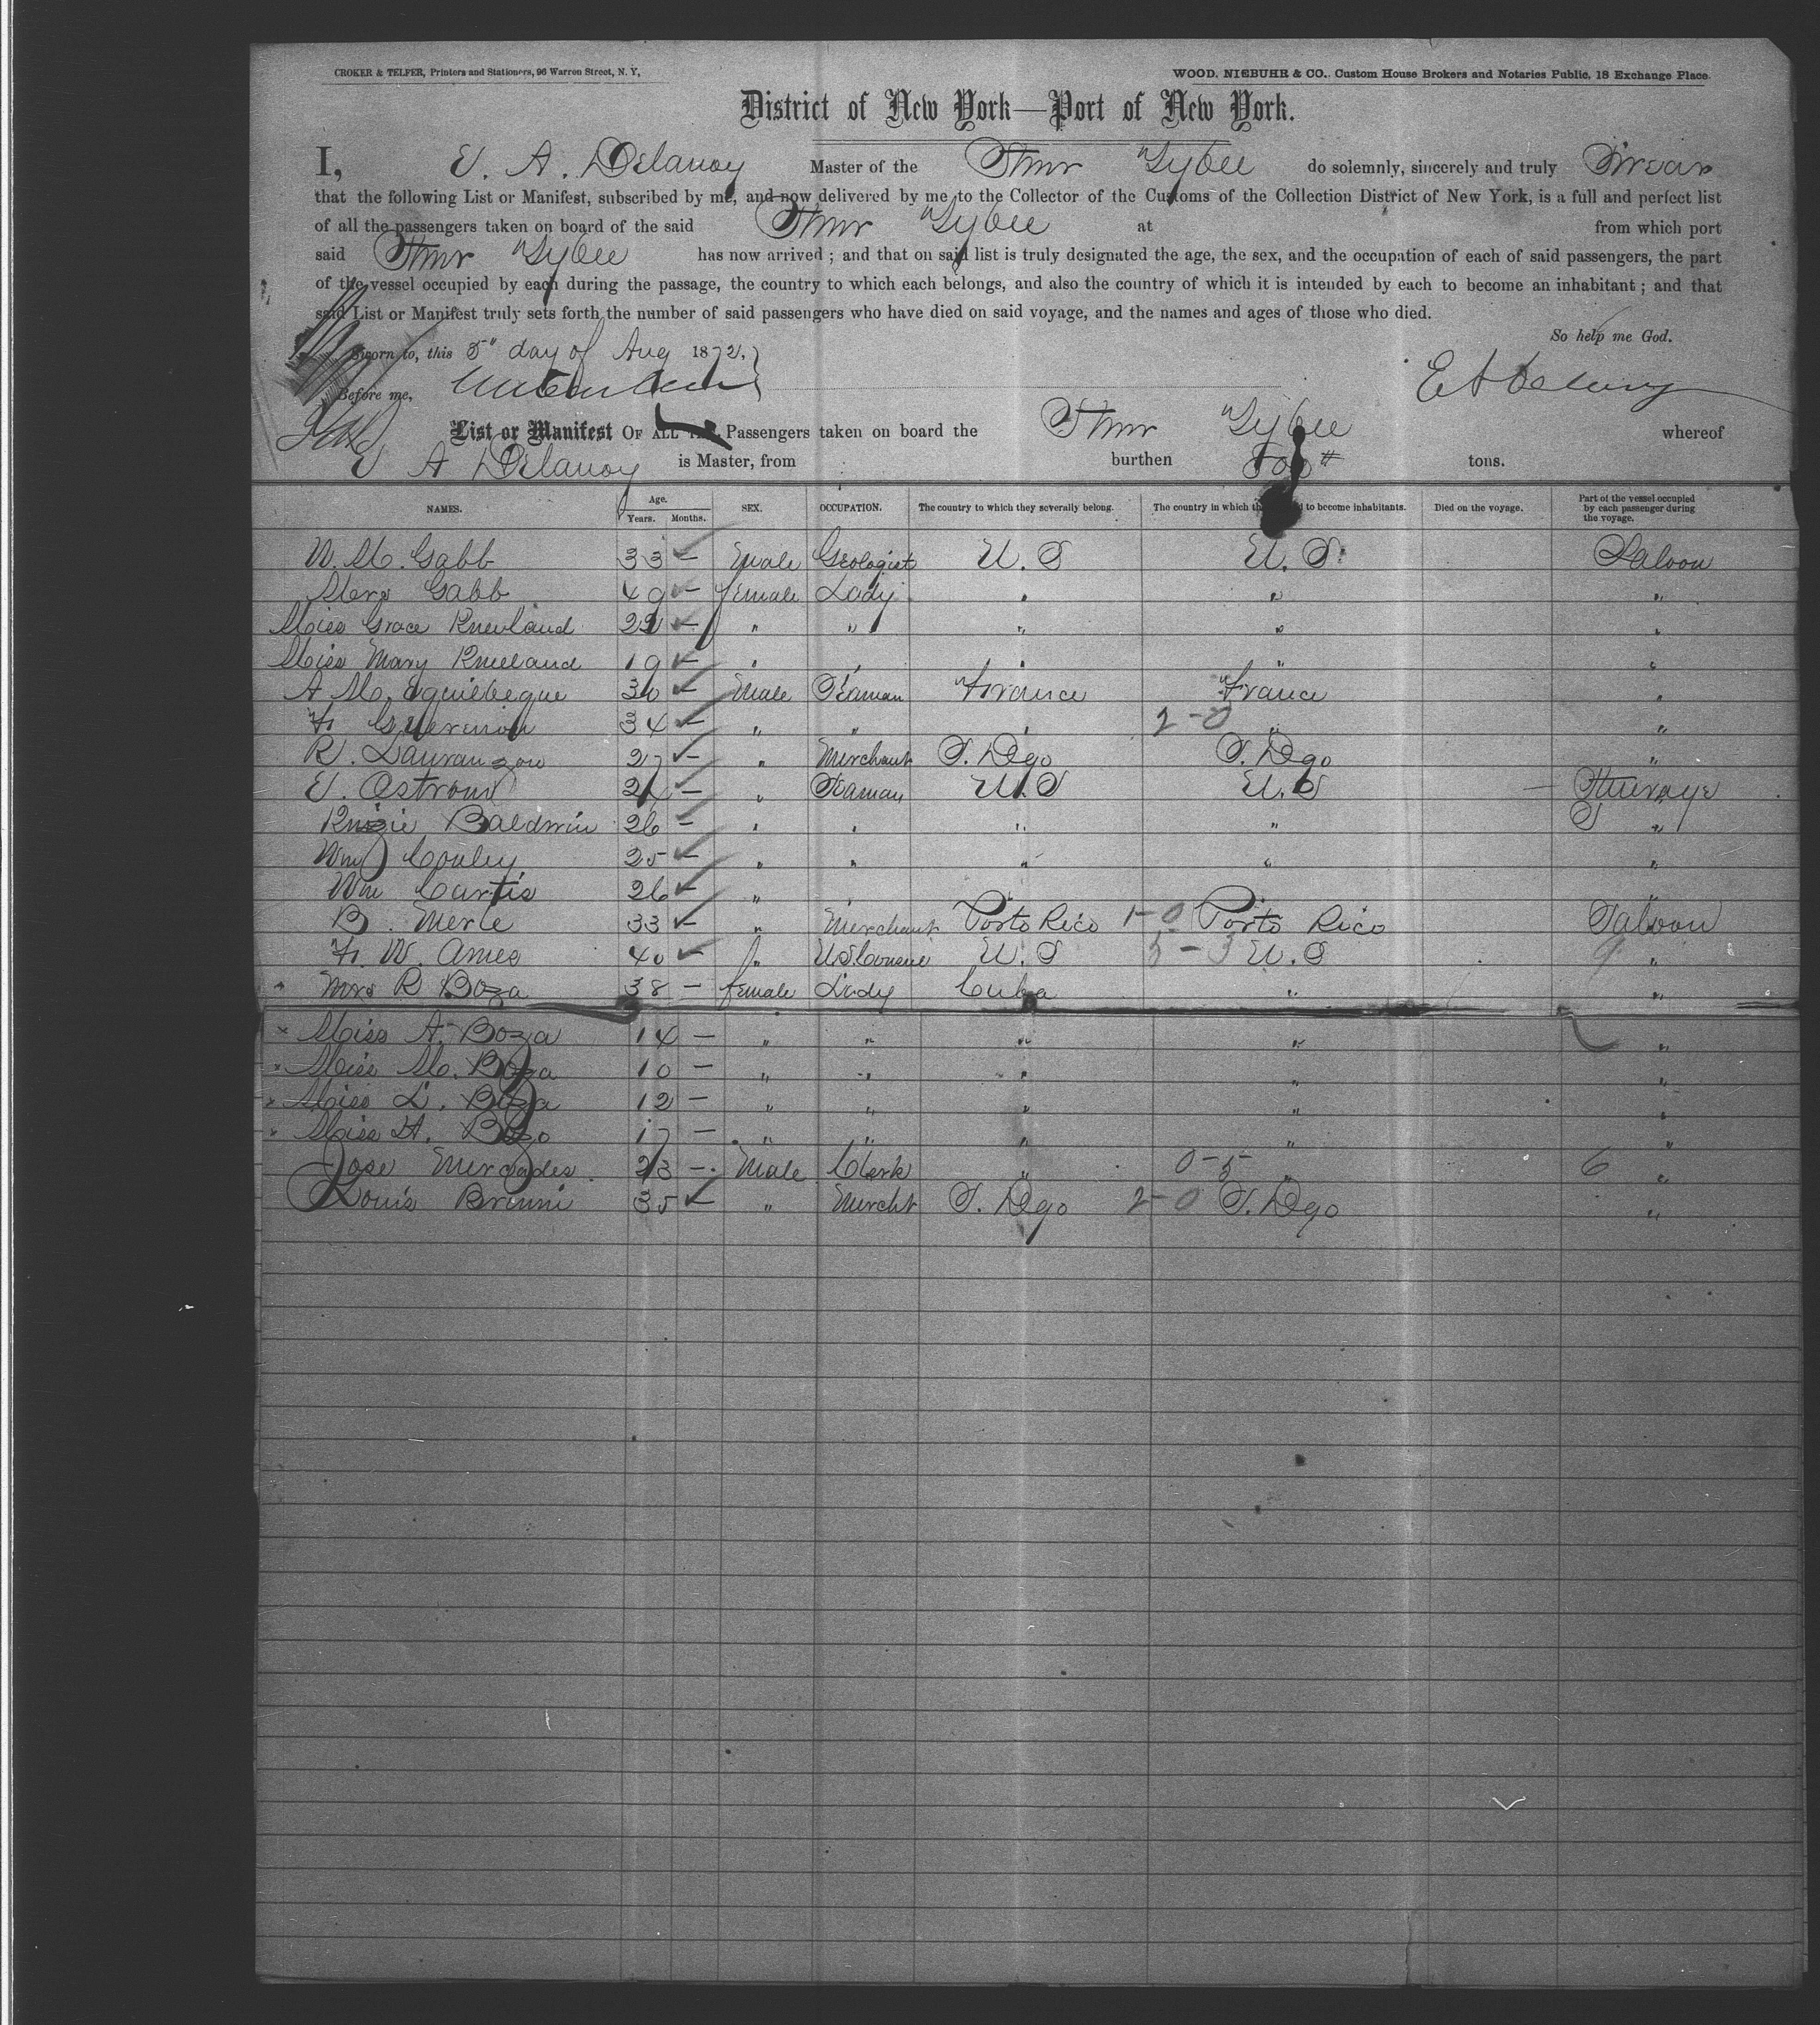 CROKER & TELFER, Printers and Stationers, 96 Warren Street, N. Y,
WOOD, NIEBUHR & CO., Custom House Brokers and Notaries Public, 18 Exchange Place.
District of New York—Port of New York.
I, E. A. Delanoy Master of the Stmr "Tybee do solemnly, sincerely and truly Swear
that the following List or Manifest, subscribed by me, and now delivered by me to the Collector of the Customs of the Collection District of New York, is a full and perfect list
of all the passengers taken on board of the said Stmr "Tybee at from which port
said Stmr "Tybee has now arrived; and that on said list is truly designated the age, the sex, and the occupation of each of said passengers, the part
of the vessel occupied by each during the passage, the country to which each belongs, and also the country of which it is intended by each to become an inhabitant; and that
said List or Manifest truly sets forth the number of said passengers who have died on said voyage, and the names and ages of those who died.
So help me God.
Sworn to, this 5" day of Aug 1872,
Before me, E A Delanoy
List or Manifest OF ALL THE Passengers taken on board the Stmr "Tybee whereof
E A Delanoy is Master, from burthen tons.
NAMES. Age. Years. Months. SEX. OCCUPATION. The country to which they severally belong. The country in which to become inhabitants. Died on the voyage. Part of the vessel occupied by each passenger during the voyage.
W. M. Gabb 33 – Male Geologist U. S U. S. Saloon
Mrs Gabb 49 – female Lady " " "
Miss Grace Kneeland 22 – " " " " "
Miss Mary Kneeland 19 – " " " "
A M. Eguilbegue 30 – Male Seaman France France "
F. Guernion 34 – " " " 2-0 " "
R. 27 – " Merchant S. Dgo S. Dgo "
E. Ostrom 24 – " Seaman U. S U. S Steerage
Baldwin 26 – " " " " S "
Wm Conley 25 – " " " " "
Wm Curtis 26 – " "
B. Merle 33 – " Merchant Porto Rico 1-0 Porto Rico Saloon
F. W. Ames 40 – " U.S. U. S 5-3 U. S 9 "
Mrs R Boza 38 – female Lady Cuba " "
Miss A. Boza 14 – " " " " "
Miss M. Boza 10 – " " " " "
Miss L. Boza 12 – " " " " "
Miss H. Bozo 17 – " " " " "
Jose Mercades 23 – Male Clerk " 0-5 " 6 "
Louis Brunni 35 – " Mercht S. Dgo 2-0 S. Dgo "